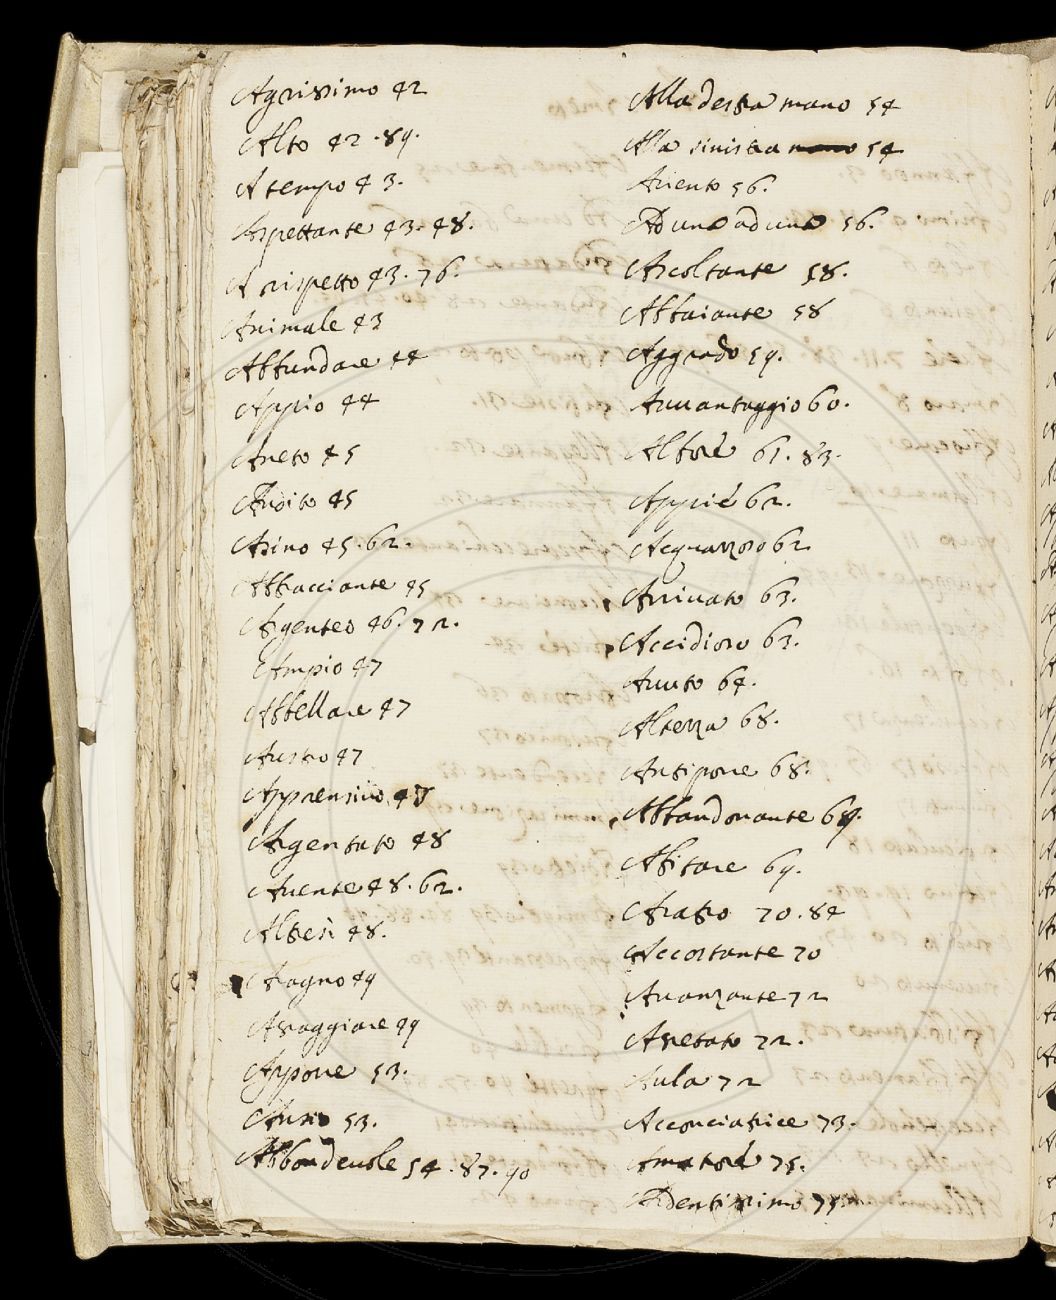 Agrissimo 42
Alto 42.89.
A tempo 43.
Aspettante 43.48.
A rispetto 43.76.
Animale 43
Abbundare 44
Appio 44
Aneto 45
Audito 45
Asino 45.62.
Abbracciante 45
Argenteo 46.72.
Ampio 47
Abbellare 47
Austro 47
Apprensivo 47
Argentato 48
Avente 48.62.
Altresì 48.
Aragno 49
Assaggiare 49
Appone 53.
Auriò 53.
Abbondevole 54.87.90
Alla destra mano 54
Alla sinistra mano 54
Ariento 56.
Ad una ad una 56.
Ascoltante 58.
Abbaiante 58
Aggrado 59.
Avvantaggio 60.
Alfore 61.83.
Appiè 62.
Acquazoso 62
Arrivato 63.
Accidioso 63.
Avuto 64.
Altezza 68.
Antipone 68.
Abbandonante 69.
Abitare 69.
Aratro 70.84
Accostante 70
Avanzante 72
Assetato 72.
Aula 72
Acconciatrice 73.
Amatore 75.
Ardentissimo 75